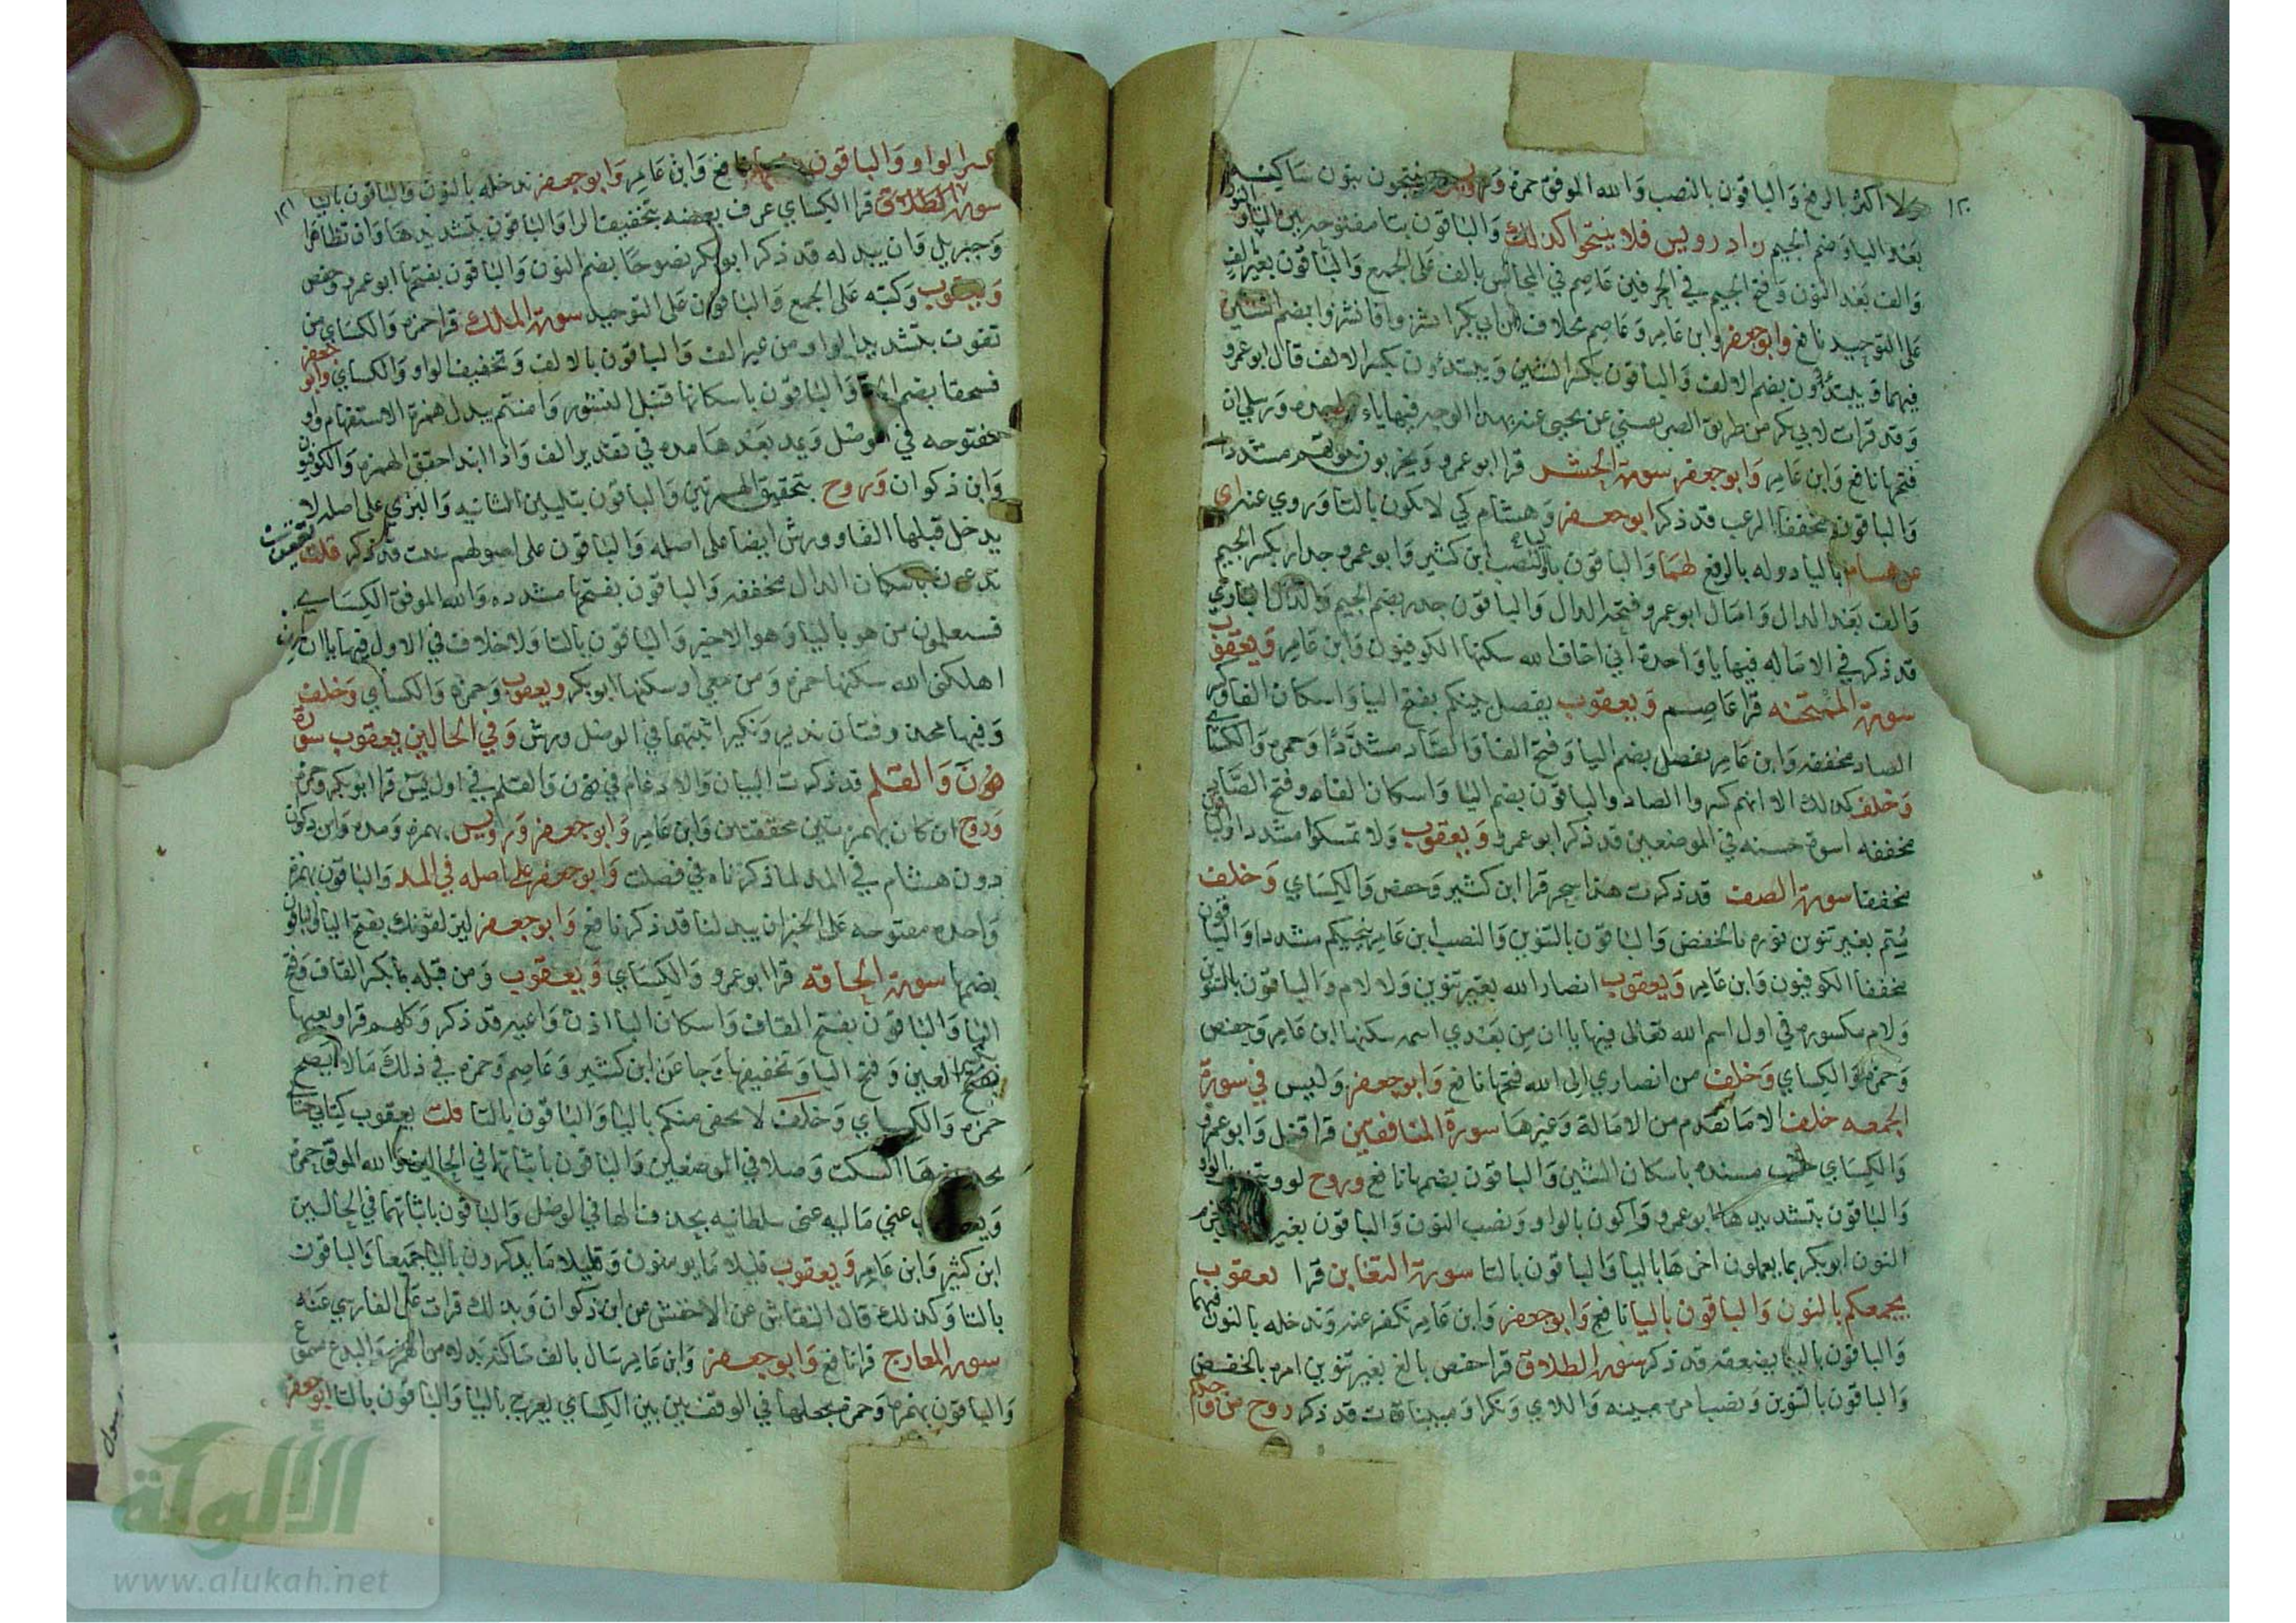 ١٢٠
ولا اكثر بالرفع والباقون بالنصب والله الموفق حمزة ورويس وينتجون بنون ساكنه
بعد اليا وضم الجيم زاد رويس فلا ينتجوا كذلك والباقون بتا مفتوحه بين اليا والنون
والف بعد النون وفتح الجيم في الحرفين عاصم في المجالس بالف على الجمع والباقون بغير الف
على التوحيد نافع وابو جعفر وابن عامر وعاصم بخلاف عن ابي بكر انشزوا فانشزوا بضم الشين
فيهما ويبتدؤن بضم الالف والباقون بكسر الشين ويبتدؤن بكسر الالف قال ابو عمرو
وقد قرات لابي بكر من طريق الصريفيني عن يحيى عنه بهذا الوجه فيها ياء واحده ورسلي ان
فتحها نافع وابن عامر وابو جعفر سورة الحشر قرا ابو عمرو ويخربون بيوتهم مشددا
والباقون مخففا الرعب قد ذكر ابو جعفر وهشام كي لا تكون بالتا وروي عنه اي
عن هسام باليا دوله بالرفع طهما والباقون باليا والنصب ابن كثير وابو عمرو جدار بكسر الجيم
والف بعد الدال وامال ابو عمرو فتحة الدال والباقون جدر بضم الجيم والدال الباري
قد ذكر في الاماله فيها يا واحدة اني اخاف الله سكنها الكوفيون وابن عامر ويعقوب
سورة الممتحنه قرا عاصم ويعقوب يفصل بينكم بفتح اليا واسكان الفا وكسر
الصاد مخففه وابن عامر يفصل بضم اليا وفتح الفا والصاد مشددا وحمزه والكسائي
وخلف كذلك الا انهم كسروا الصاد والباقون بضم اليا واسكان الفاء وفتح الصاد
مخففه اسوة حسنه في الموضعين قد ذكر ابو عمرو ويعقوب ولا تمسكوا مشددا والباقون
مخففا سورة الصف قد ذكرت هذا سحر قرا ابن كثير وحفص والكسائي وخلف
متم بغير تنون نوره بالخفض والباقون بالتنوين والنصب ابن عامر تنجيكم مشددا والباقون
مخففا الكوفيون وابن عامر ويعقوب انصار الله بغير تنوين ولا لام والباقون بالتنوين
ولام مكسوره في اول اسم الله تعالى فيها ياان من بعدي اسمه سكنها ابن عامر وحفص
وحمزه والكسائي وخلف من انصاري الى الله فتحها نافع وابو جعفر وليس في سورة
الجمعه خلف الا ما تقدم من الامالة وغيرها سورة المنافقين قرا قنبل وابو عمرو
والكسائي خشب مسنده باسكان الشين والباقون بضمها نافع وروح لووا بتخفيف الواو
والباقون بتشديدها ابو عمرو واكون بالواو ونصب النون والباقون بغير واو وجزم
النون ابو بكر بما يعملون اخرها باليا والباقون بالتا سورة التغابن قرا يعقوب
يجمعكم بالنون والباقون باليا نافع وابو جعفر وابن عامر نكفر عنه وندخله بالنون فيهما
والباقون باليا يضعفه قد ذكر سورة الطلاق قرا حفص بالغ بغير تنوين امره بالخفض
والباقون بالتنوين ونصب امره مبينه واللاي ونكرا ومبينات قد ذكر روح من وجدكم
١٢١
بكسر الواو والباقون بضمها نافع وابن عامر وابو جعفر ندخله بالنون والباقون باليا
سورة الطلاق قرا الكسائي عرف بعضه بتخفيف الرا والباقون بتشديدها وان تظاهرا
وجبريل وان يبدله قد ذكر ابو بكر نصوحا بضم النون والباقون بفتحها ابو عمرو وحفص
ويعقوب وكتبه على الجمع والباقون على التوحيد سورة الملك قرا حمزه والكسائي من
تفوت بتشديد الواو من غير الف والباقون بالالف وتخفيف الواو والكسائي وابو جعفر
فسحقا بضم الحا والباقون باسكانها قنبل النشور وامنتم يبدل همزة الاستفهام واو
مفتوحه في الوصل ويمد بعدها مده في تقدير الف واذا ابتدا حقق الهمزه والكوفيون
وابن ذكوان وروح بتحقيق الهمزتين والباقون بتليين الثانيه والبزي على اصله لا
يدخل قبلها الفا وورش ايضا على اصله والباقون على اصولهم سئت قد ذكر قلت يعقوب
تدعون باسكان الدال مخففه والباقون بفتحها مشدده والله الموفق الكسائي
فسيعلمون من هو باليا وهو الاخير والباقون بالتا ولا خلاف في الاول فيها ياان ان
اهلكني الله سكنها حمزه ومن معي او سكنها ابو بكر ويعقوب وحمزه والكسائي وخلف
وفيها محذوفتان نذير ونكير اثبتهما في الوصل ورش وفي الحالين يعقوب سورة
ن والقلم قد ذكرت البيان والادغام في ن والقلم في اول يس قرا ابو بكر وحمزه
وروح ان كان بهمزتين محققتين وابن عامر وابو جعفر ورويس بهمزه ومده وابن ذكوان
دون هشام في المد لما ذكرناه في فصلت وابو جعفر على اصله في المد والباقون بهمزه
واحده مفتوحه على الخبر ان يبدلنا قد ذكر نافع وابو جعفر ليزلقونك بفتح اليا والباقون
بضمها سورة الحاقه قرا ابو عمرو والكسائي ويعقوب ومن قبله بكسر القاف وفتح
البا والباقون بفتح القاف واسكان البا اذن واعيه قد ذكر وكلهم قرا وتعيها
بكسر العين وفتح اليا وتخفيفها وجا عن ابن كثير وعاصم وحمزه في ذلك ما لا يصح
حمزه والكسائي وخلف لا يخفى منكم باليا والباقون بالتا قلت يعقوب كتابي حسابي
بحذف ها السكت وصلا في الموضعين والباقون باثباتها في الحالين والله الموفق حمزه
ويعقوب عني ماليه عني سلطانيه بحذف الها في الوصل والباقون باثباتهما في الحالين
ابن كثير وابن عامر ويعقوب قليلا ما يومنون وقليلا ما يذكرون باليا جميعا والباقون
بالتا وكذلك قال النقاش عن الاخفش عن ابن ذكوان وبذلك قرات على الفارسي عنه
سورة المعارج قرا نافع وابو جعفر وابن عامر سال بالف ساكنه بدلا من الهمزه والبدل مسموع
والباقون بهمزه وحمزه يجعلها في الوقف بين بين الكسائي يعرج باليا والباقون بالتا ابو جعفر
الألوكة
www.alukah.net